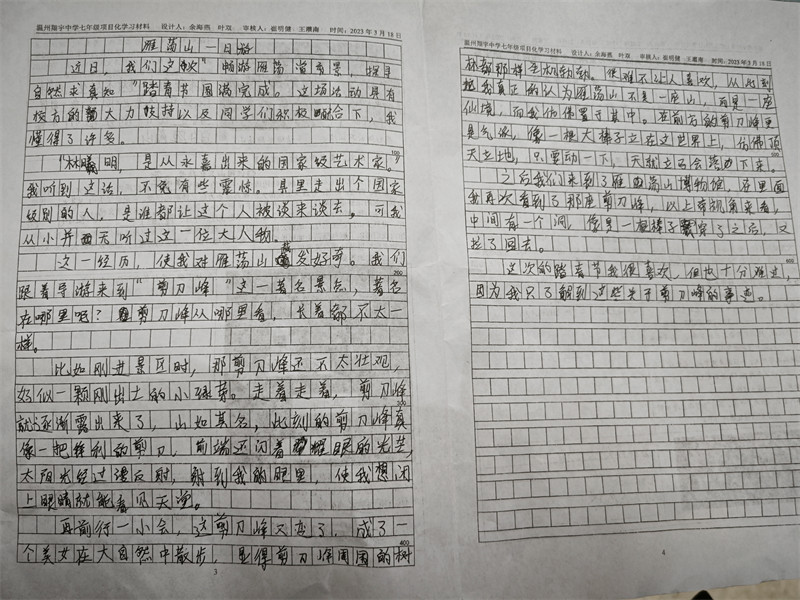 温州翔宇中学七年级项目化学习材料 设计人：余海燕 叶双 审核人：崔明健 王雁南 时间：2023年3月18日
雁荡山一日游
近日，我们这次“畅游雁荡道奇景，探寻
自然求真知”踏春节圆满完成。这场活动具有
校方的大力支持以及同学们积极配合下，我
懂得了许多。
100
“林曦明，是从永嘉出来的国家级艺术家。”
我听到这话，不免有些震惊。县里走出个国家
级别的人，是谁都让这个人被谈来谈去。可我
从小并两天听过这一位大人物。
这一经历，使我对雁荡山越发好奇。我们
200
跟着导游来到“剪刀峰”这一著名景点，著名
在哪里呢？剪刀峰从哪里看，长着都不太一
样。
比如刚进景区时，那剪刀峰还不太壮观，
好似一颗刚出土的小绿芽。走着走着，剪刀峰
300
就逐渐露出来了，山如其名，此刻的剪刀峰真
像一把锋利的剪刀，前端还闪着耀眼的光芒，
太阳光经过漫反射，射到我的眼里，使我想闭
上眼睛就能看见天堂。
再前行一小会，这剪刀峰又变了，成了一
400
个美女在大自然中散步，显得剪刀峰周围的树
3
温州翔宇中学七年级项目化学习材料 设计人：余海燕 叶双 审核人：崔明健 王雁南 时间：2023年3月18日
林都那样生机勃勃。使难不让人喜欢，从此刻
起我真正的认为雁荡山不是一座山，而是一座
仙境，而我仿佛置于其中。在前方的剪刀峰更
是气派，像一根大棒子立在这世界上，仿佛顶
天立地，只要动一下，天就立马会落边下来。
之后我们来到了雁荡山博物馆，在里面
我再次看到了那座剪刀峰，以上帝视角来看，
中间有一个洞，像是一根棒子穿了之后，又
了回去。
600
这次的踏春节我很喜欢，但也十分难过，
因为我只了解到这些关于剪刀峰的事迹。
4